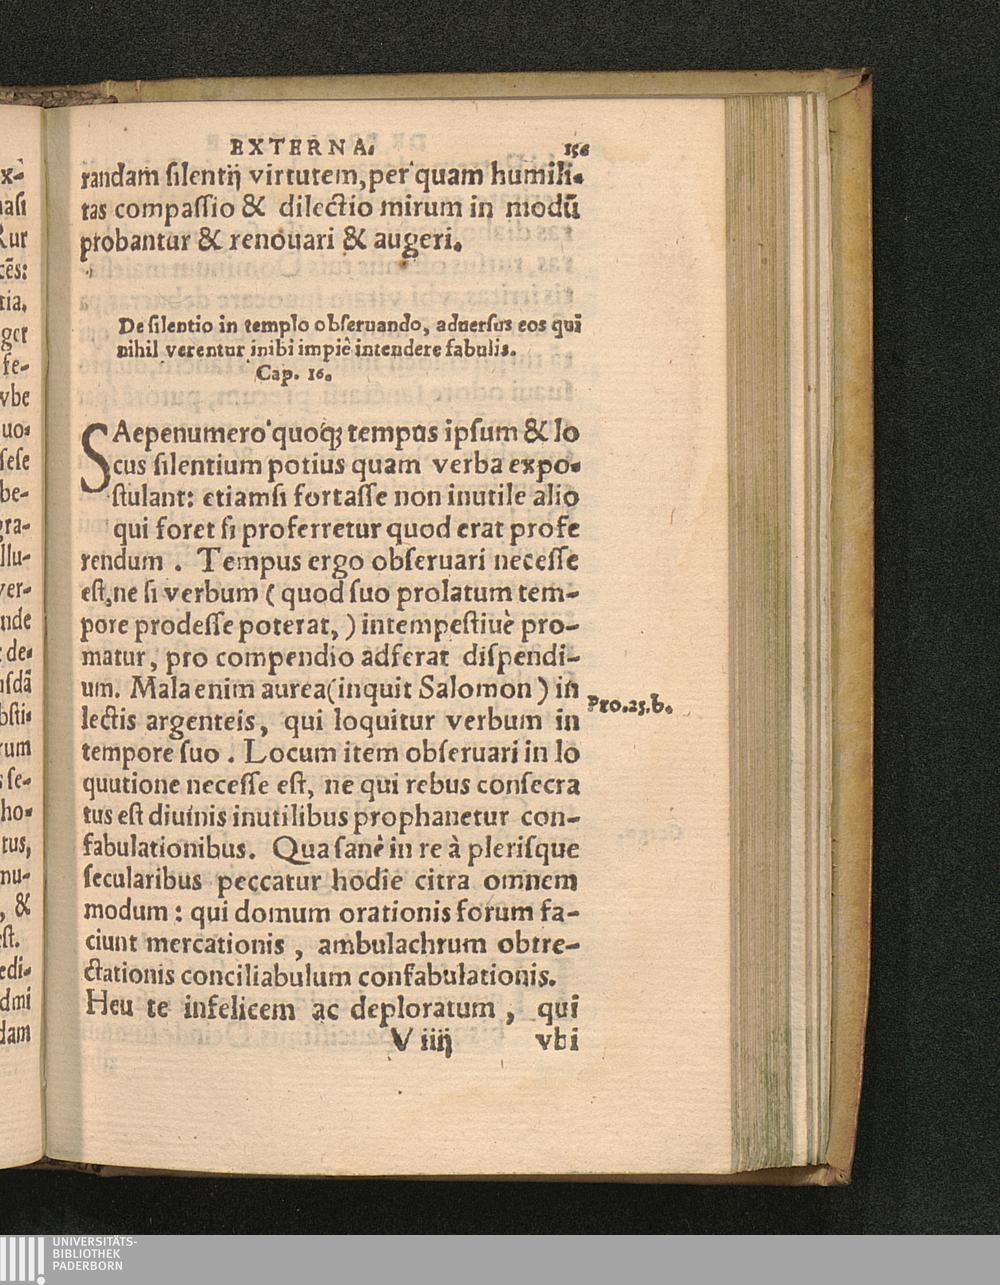 EXTERNA. 156
randam silentij virtutem, per quam humili-
tas compassio & dilectio mirum in modū
probantur & renouari & augeri.
De silentio in templo obseruando, aduersus eos qui
nihil verentur inibi impiè intendere fabulis.
Cap. 16.
SAepenumero quoq; tempus ipsum & lo
cus silentium potius quam verba expo-
stulant: etiamsi fortasse non inutile alio
qui foret si proferretur quod erat profe
rendum. Tempus ergo obseruari necesse
est, ne si verbum (quod suo prolatum tem-
pore prodesse poterat,) intempestiuè pro-
matur, pro compendio adferat dispendi-
um. Mala enim aurea (inquit Salomon) in
Pro.25.b.
lectis argenteis, qui loquitur verbum in
tempore suo. Locum item obseruari in lo
quutione necesse est, ne qui rebus consecra
tus est diuinis inutilibus prophanetur con-
fabulationibus. Qua sanè in re à plerisque
secularibus peccatur hodie citra omnem
modum: qui domum orationis forum fa-
ciunt mercationis, ambulachrum obtre-
ctationis conciliabulum confabulationis.
Heu te infelicem ac deploratum, qui
V iiij vbi
x-
nasi
Rur
cēs:
tia.
ger
fe-
vbe
uo-
sese
be-
gra-
llu-
ver-
nde
de-
usdā
bsti-
rum
s se-
ho-
tus,
nu-
, &
est.
edi-
dmi
dam
UNIVERSITÄTS-
BIBLIOTHEK
PADERBORN